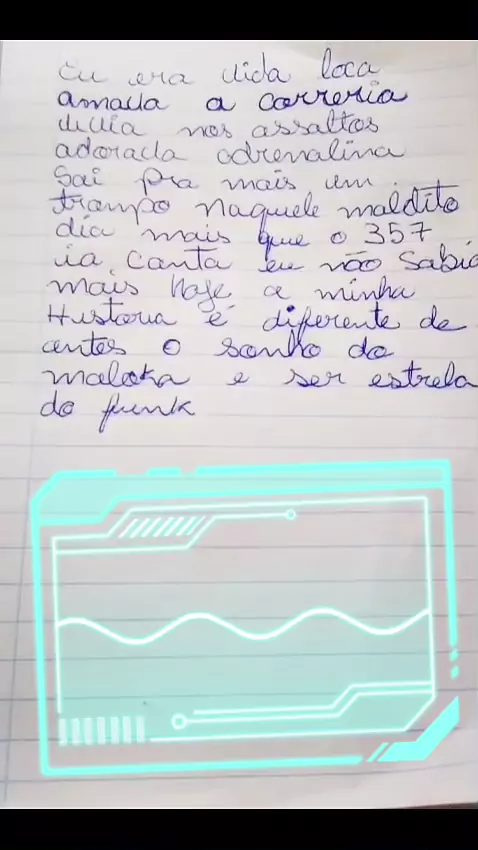 Eu era vida loca
amava a correria
vivia nos assaltos
adorava adrenalina
Sai pra mais um
trampo naquele maldito
dia mais que o 357
ia canta eu não sabia
mais hoje a minha
Historia é diferente de
antes o sonho do
maloka e ser estrela
do funk